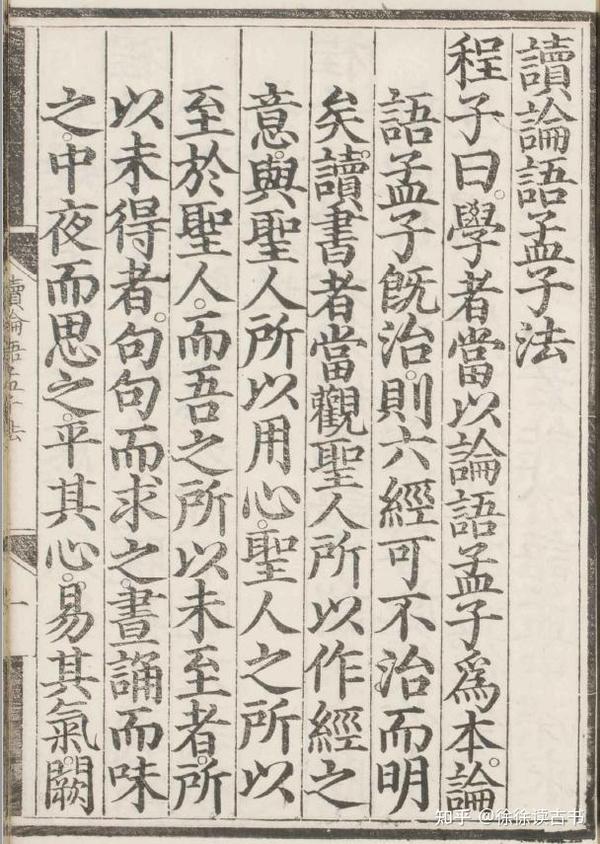 讀論語孟子法
程子曰。學者當以論語孟子爲本。論
語孟子旣治。則六經可不治而明
矣。讀書者當觀聖人所以作經之
意。與聖人所以用心。聖人之所以
至於聖人。而吾之所以未至者。所
以未得者。句句而求之。晝誦而味
之。中夜而思之。平其心。易其氣。闕
讀論語孟子法
一
知乎 @徐徐读古书